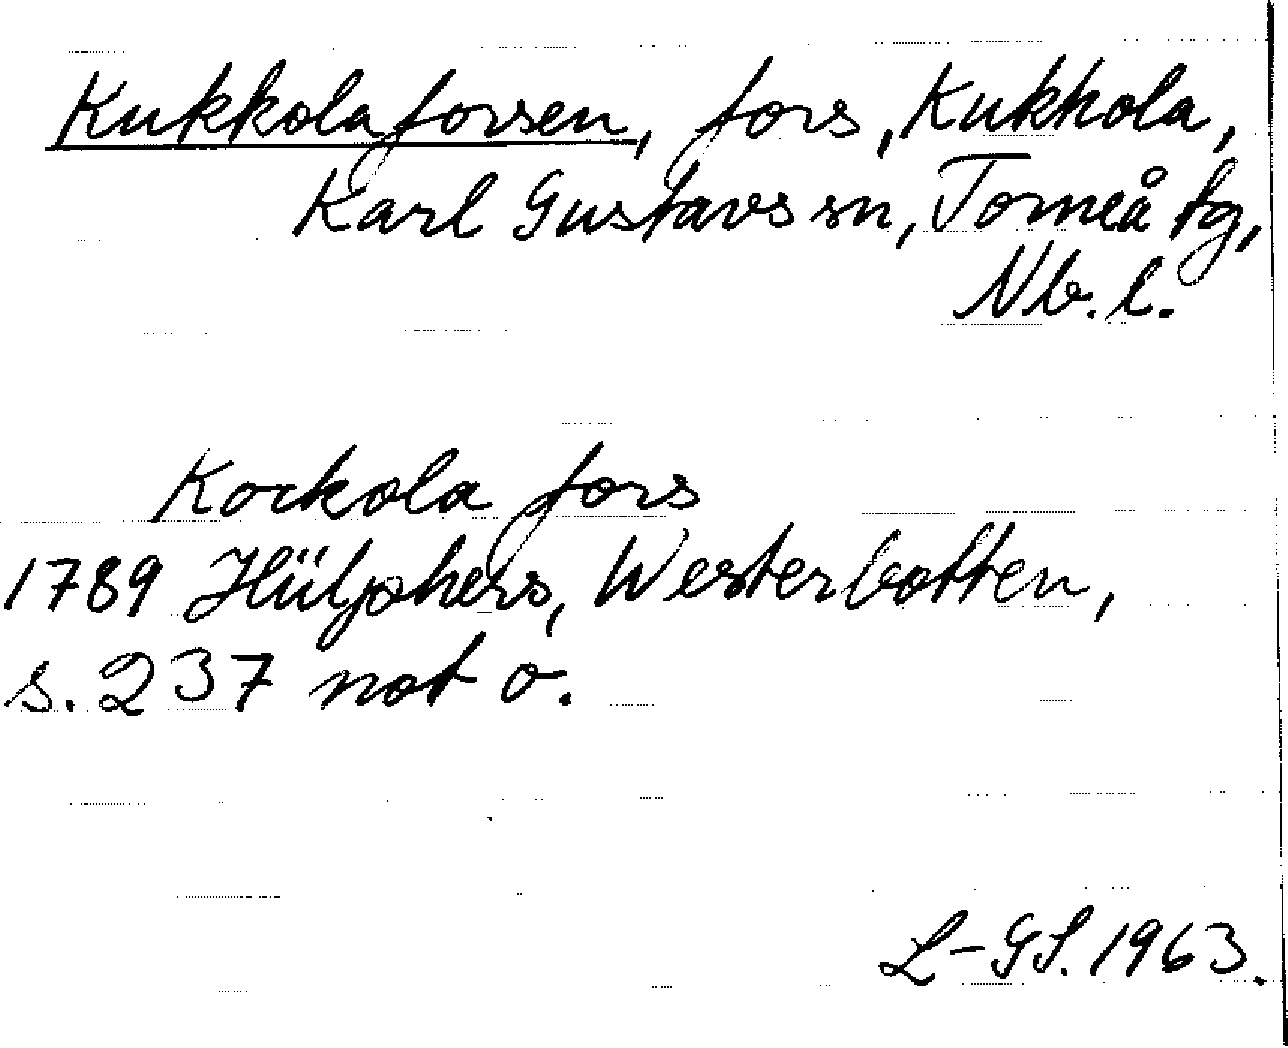 Kukkolaforsen, fors, Kukkola,
Karl Gustavs sn, Torneå tg,
Nb. l.
Kockola fors
1789 Hülphers, Westerbotten,
s. 237 not o.
L-GS. 1963.